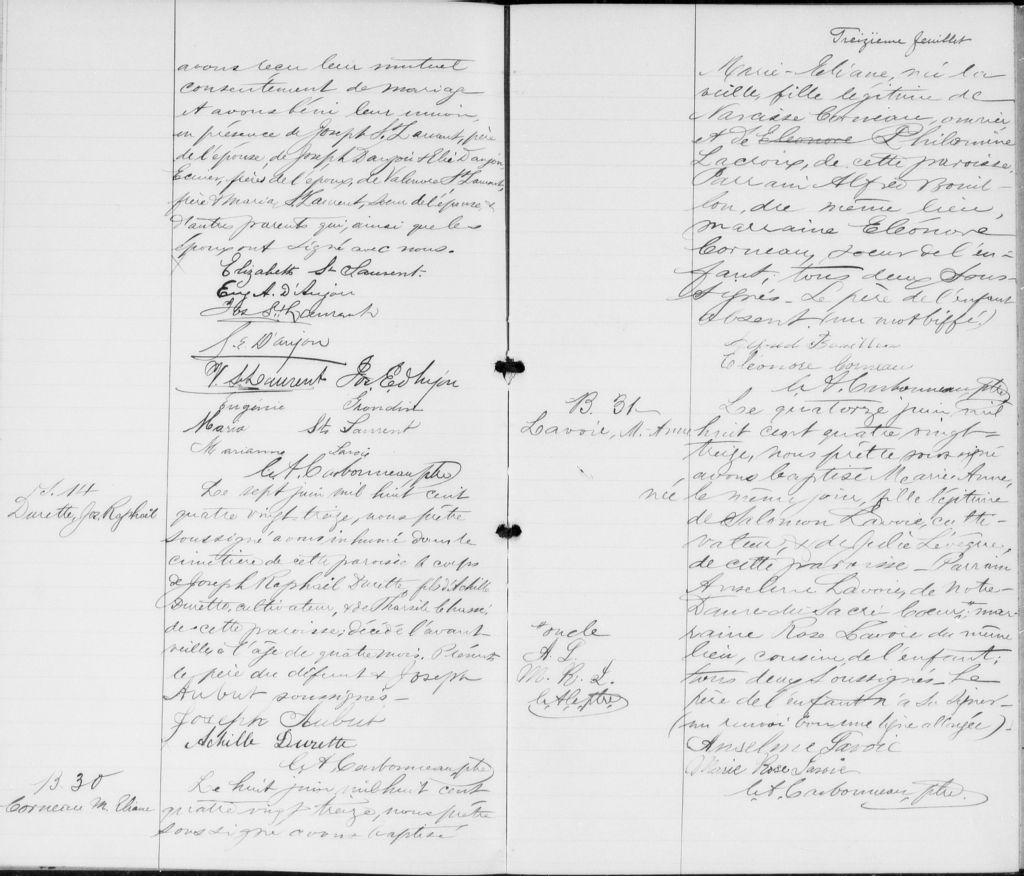 avons reçu leur mutuel
consentement de mariage
et avons béni leur union,
en présence de Joseph St Laurent, père
de l'épouse, de Joseph Danjou & Elie Danjou
Ecuier, frères de l'époux, de St Laurent,
frère & Maria St Laurent, soeur de l'épouse, &
d'autres parents qui, ainsi que les
époux ont signé avec nous.
Elizabeth St Laurent
Eug A. D'Anjou
Jos St Laurent
J. E D'anjou
St Laurent Jos. E. d'Anjou
Eugénie Grondin
Maria St Laurent
Marianne Lavoie
C. A. Carbonneau, ptre
S. 14
Durette, Jos. Raphaël
Le sept juin mil huit cent
quatre vingt treize, nous prêtre
soussigné avons inhumé dans le
cimetière de cette paroisse le corps
de Joseph Raphaël Durette, fils d'Achille
Durette, cultivateur, & de Tharsile
de cette paroisse, décédé l'avant
veille à l'âge de quatre mois. Présents
le père du défunt & Joseph
Aubut soussignés—
Joseph Aubut
Achille Durette
C. A. Carbonneau, ptre
B. 30
Corneau M. Eliane
Le huit juin mil huit cent
quatre vingt treize, nous prêtre
soussigné avons baptisé
Treizième feuillet
Marie-Eliane, née la
veille, fille légitime de
Narcisse Corneau, ouvrier
et de Eleonore Philomène
Lacroix, de cette paroisse.
Parrain Alfred Bouil-
lon, du même lieu,
marraine Eleonore
Corneau, soeur de l'en-
fant; tous deux sous-
signés— Le père de l'enfant
absent. (un mot biffé)
Alfred Bouillon
Eléonore Corneau
C. A. Carbonneau, ptre
B. 31
Lavoie, M. Anne
Le quatorze juin mil
huit cent quatre vingt-
treize, nous prêtre soussigné
avons baptisé Marie Anne,
née le même jour, fille légitime
de Salomon Lavoie, culti-
vateur, & de Lévèque,
de cette paroisse— Parrain
Anselme Lavoie, de Notre-
Dame du Sacré Coeur, mar-
raine Rose Lavoie du même
lieu, cousine de l'enfant;
tous deux soussignés— Le
père de l'enfant n'a su signer—
(un renvoi bon une ligne allongée).
+ oncle
A. L.
M. R. L.
C. A. C. ptre
Anselme Lavoie
Marie Rose Lavoie
C. A. Carbonneau, ptre.